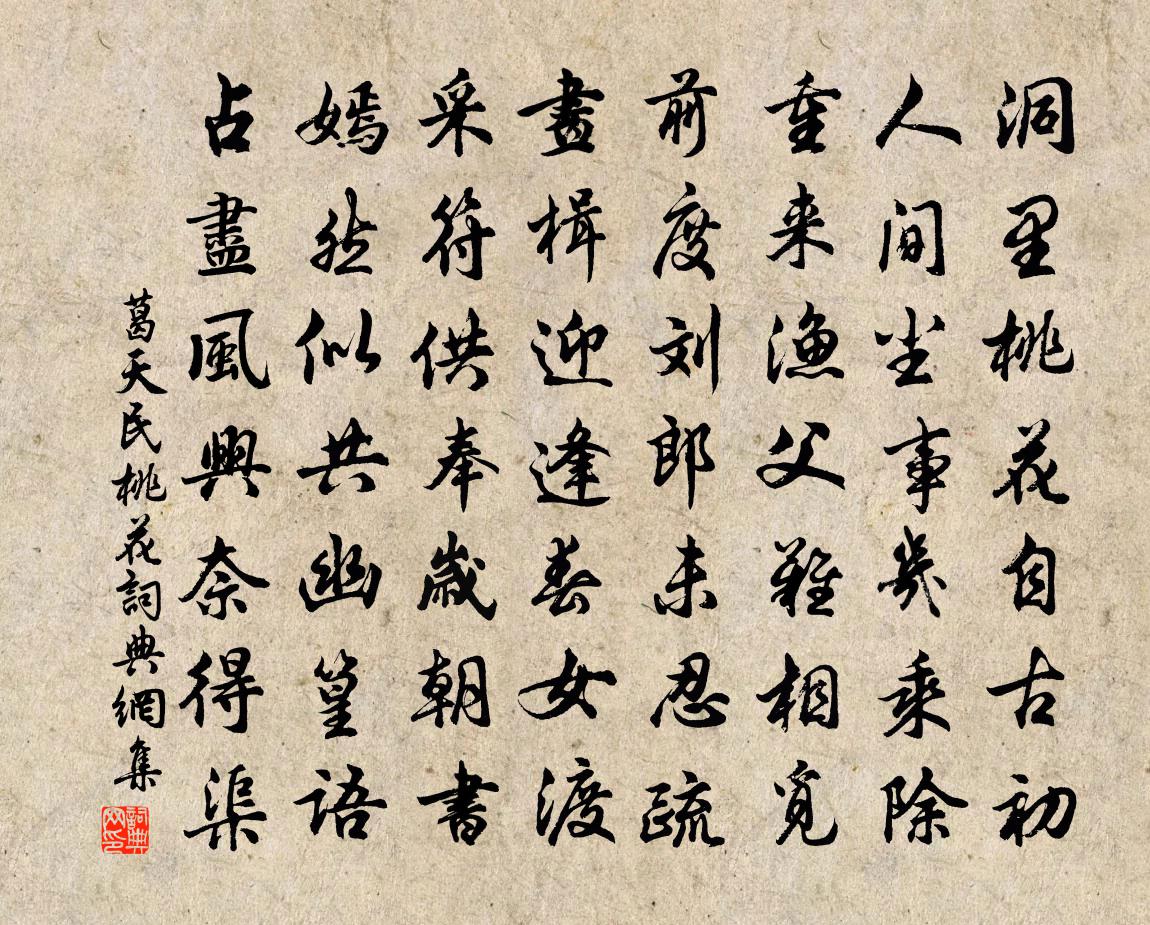 洞里桃花自古初
人间坐事几乘除
重来渔父难相觅
前度刘郎未忍疏
画楫迎逢春女渡
采符供奉岁朝书
嫣然似共幽篁语
占尽風興奈得渠
葛天民桃花詞典網集
詞典网印